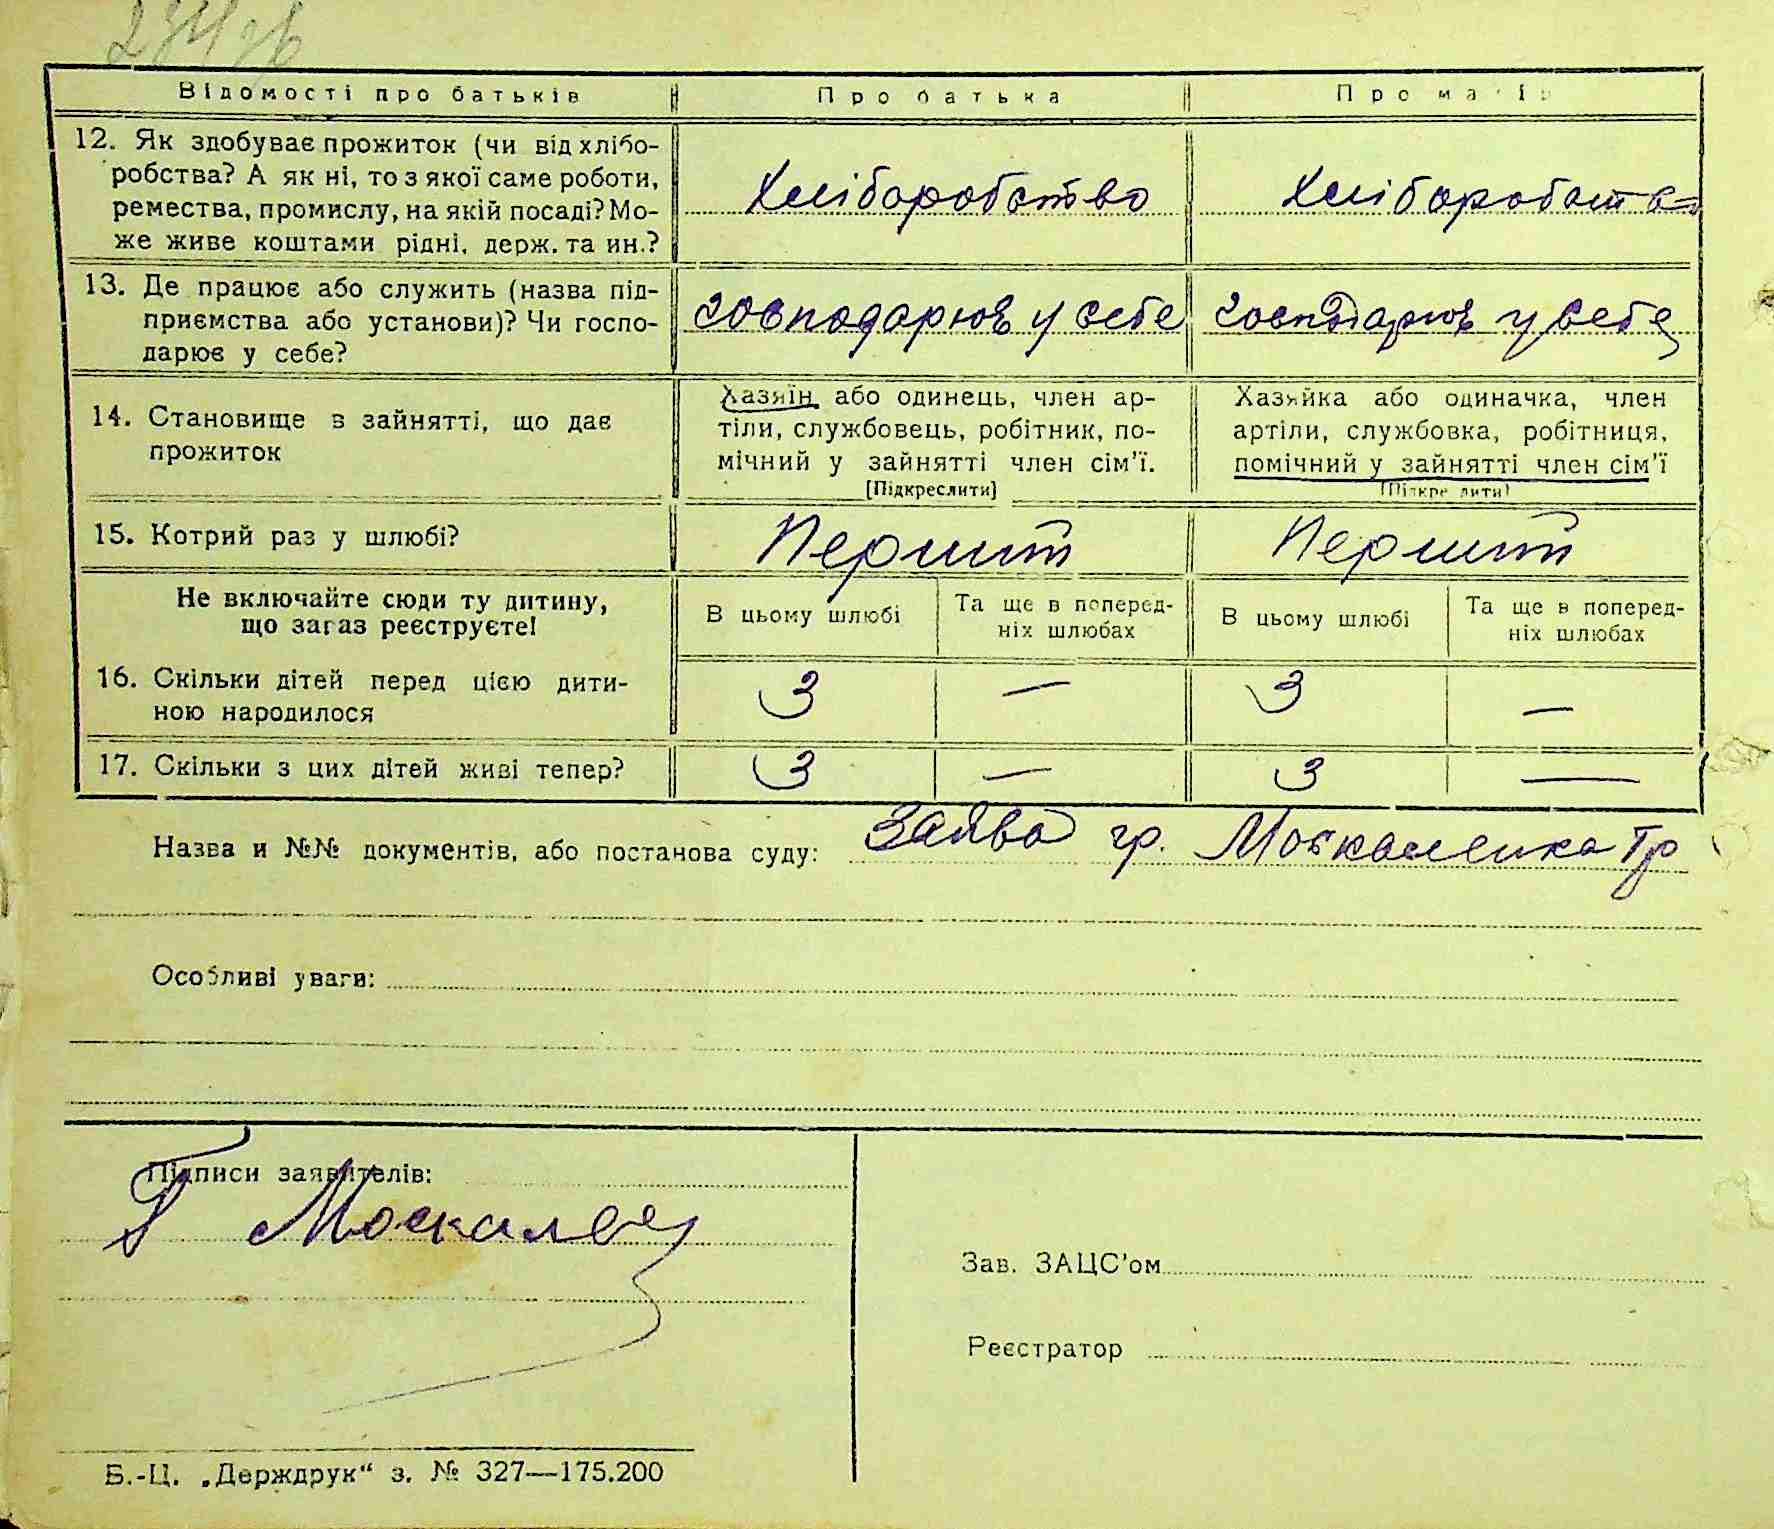 Відомості про батьків Про батька Про матір
12. Як здобуває прожиток (чи від хлібо-
робства? А як ні, то з якої саме роботи,
ремества, промислу, на якій посаді? Мо-
же живе коштами рідні, держ. та ин.?
Хліборобство Хліборобств
13. Де працює або служить (назва під-
приємства або установи)? Чи госпо-
дарює у себе?
господарює у себе господарює у себе
14. Становище в зайнятті, що дає
прожиток
Хазяїн або одинець, член ар-
тіли, службовець, робітник, по-
мічний у зайнятті член сім'ї.
[Підкреслити]
Хазяйка або одиначка, член
артіли, службовка, робітниця,
помічний у зайнятті член сім'ї
[Підкреслити]
15. Котрий раз у шлюбі? Перший Перший
Не включайте сюди ту дитину,
що зараз реєструєте!
В цьому шлюбі Та ще в поперед-
ніх шлюбах В цьому шлюбі Та ще в поперед-
ніх шлюбах
16. Скільки дітей перед цією дити-
ною народилося
3 — 3 —
17. Скільки з цих дітей живі тепер? 3 — 3 —
Назва и №№ документів, або постанова суду: Заява гр. Москаленка Гр
Особливі уваги:
Підписи заявителів:
Г Москален
Зав. ЗАЦС'ом
Реєстратор
Б.-Ц. „Держдрук“ з. № 327—175.200